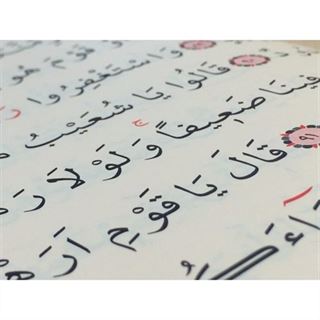 قَوْمَ
وَاسْتَغْفِرُوا
قَالُوا يَا شُعَيْبُ
فِينَا ضَعِيفاً وَلَوْلَا
٩١ قَالَ يَا قَوْمِ